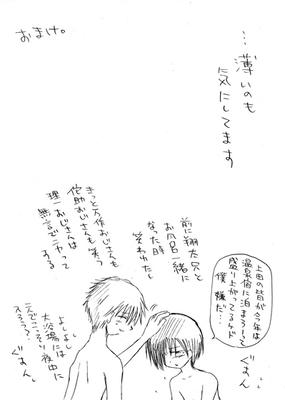 おまけ。
…薄いのも
気にしてます
上田の皆が今年は
温泉宿に泊まろーって
盛り上がってるケド
僕嫌だ…
ぐすん
前に翔太兄と
お風呂一緒に
なった時
笑われたし
きっと万作おじさんも笑う
侘助おじさんも笑う
理一おじさんは
無言でニヤってする
よしよし
大浴場には
夜中に
こっそり
ぐすん